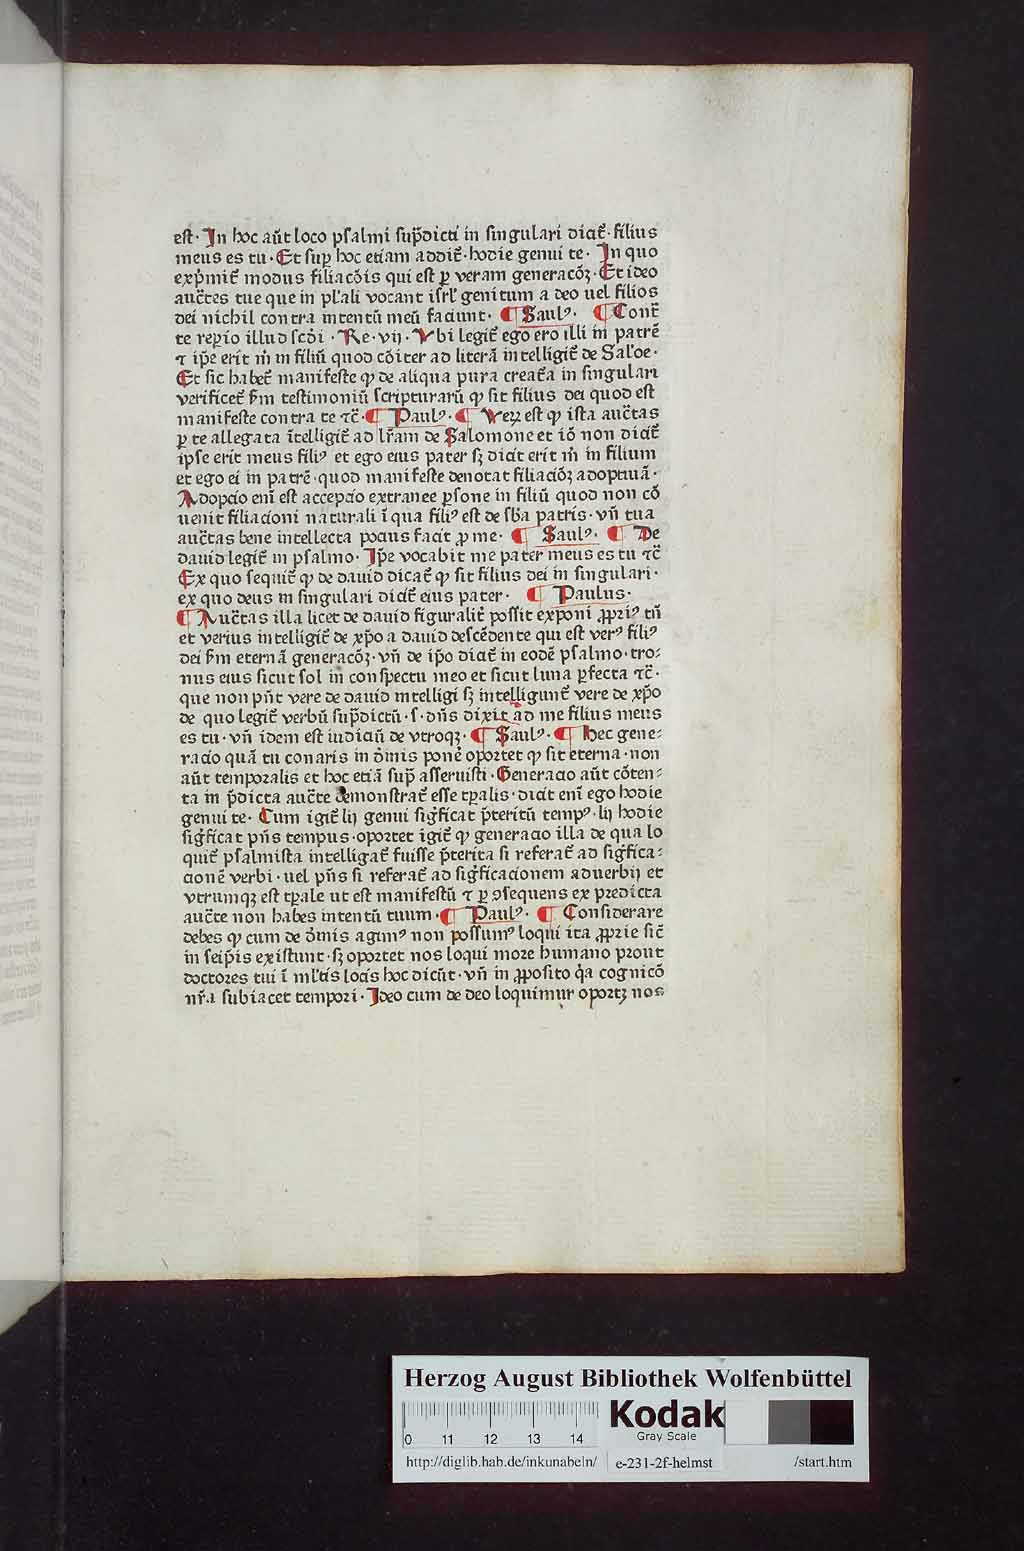 est· In hoc aūt loco psalmi sup̄dicti in singulari dicit̄· filius
meus es tu· Et suꝑ hoc etiam addit̄· hodie genui te· In quo
exp̄mit̄ modus filiacōis qui est ꝑ veram generacōꝫ· Et ideo
auct̄es tue que in pl'ali vocant isrl' genitum a deo uel filios
dei nichil contra intentū meū faciunt· ¶ Saulꝰ· ¶ Cont̄
te reꝑio illud scdi · Re· vij· Vbi legit̄ ego ero illi in patrē
⁊ ip̄e erit m̄ in filiū quod cōiter ad literā intelligit̄ de Sal'oe·
Et sic habet̄ manifeste ꝙ de aliqua pura creat̄a in singulari
verificet̄ ẜm testimoniū scripturarū ꝙ sit filius dei quod est
manifeste contra te ⁊c̄· ¶ Paulꝰ· ¶ Veꝝ est ꝙ ista auct̄as
ꝑ te allegata ītelligit̄ ad lr̄am de Salomone et iō non dicit̄
ipse erit meus filiꝰ et ego eius pater sꝫ dicit erit m̄ in filium
et ego ei in patrē· quod manifeste denotat filiacōꝫ adoptiuā·
Adopcio enī est accepcio extranee ꝑsone in filiū quod non cō
uenit filiacioni naturali ī qua filiꝰ est de sb̄a patris· vn̄ tua
auct̄as bene intellecta pocius facit ꝓ me· ¶ Saulꝰ· ¶ De
dauid legit̄ in psalmo· Ip̄e vocabit me pater meus es tu ⁊c̄
Ex quo sequit̄ ꝙ de dauid dicat̄ ꝙ sit filius dei in singulari·
ex quo deus in singulari dicit̄ eius pater· ¶ Paulus·
¶ Auct̄as illa licet de dauid figuralit̄ possit exponi ꝓpriꝰ tn̄
et verius intelligit̄ de xp̄o a dauid descēdente qui est verꝰ filiꝰ
dei ẜm eternā generacōꝫ· vn̄ de ip̄o dicit̄ in eodē psalmo· tro⸗
nus eius sicut sol in conspectu meo et sicut luna ꝑfecta ⁊c̄·
que non pn̄t vere de dauid intelligi sꝫ intelligunt̄ vere de xp̄o
de quo legit̄ verbū sup̄dictū· s· dn̄s dixit ad me filius meus
es tu· vn̄ idem est iudiciū de vtroqꝫ· ¶ Saulꝰ· ¶ Hec gene⸗
racio quā tu conaris in dīnis ponē oportet ꝙ sit eterna· non
aūt temporalis et hoc etiā sup̄ asseruisti· Generacio aūt cōten⸗
ta in p̄dicta auct̄e demonstrat̄ esse tꝑalis· dicit enī ego hodie
genui te· Cum igit̄ lij genui sig̓ficat p̄teritū tempꝰ· lij hodie
sig̓ficat pn̄s tempus· oportet igit̄ ꝙ generacio illa de qua lo
quit̄ psalmista intelligat̄ fuisse p̄terita si referat̄ ad sig̓fica⸗
cionē verbi· uel pn̄s si referat̄ ad sig̓ficacionem aduerbij et
vtrumqꝫ est tꝑale ut est manifestū ⁊ ꝑ ꝯsequens ex predicta
auct̄e non habes intentū tuum· ¶ Paulꝰ· ¶ Considerare
debes ꝙ cum de dīnis agimꝰ non possumꝰ loqui ita ꝓprie sic̄
in seip̄is existunt· sꝫ oportet nos loqui more humano prout
doctores tui ī ml'tis locis hoc dicūt· vn̄ in ꝓposito q̓a cognicō
nr̄a subiacet tempori· Ideo cum de deo loquimur oportꝫ nos
Herzog August Bibliothek Wolfenbüttel
0 11 12 13 14
Kodak
Gray Scale
http://diglib.hab.de/inkunabeln/ e-231-2f-helmst /start.htm